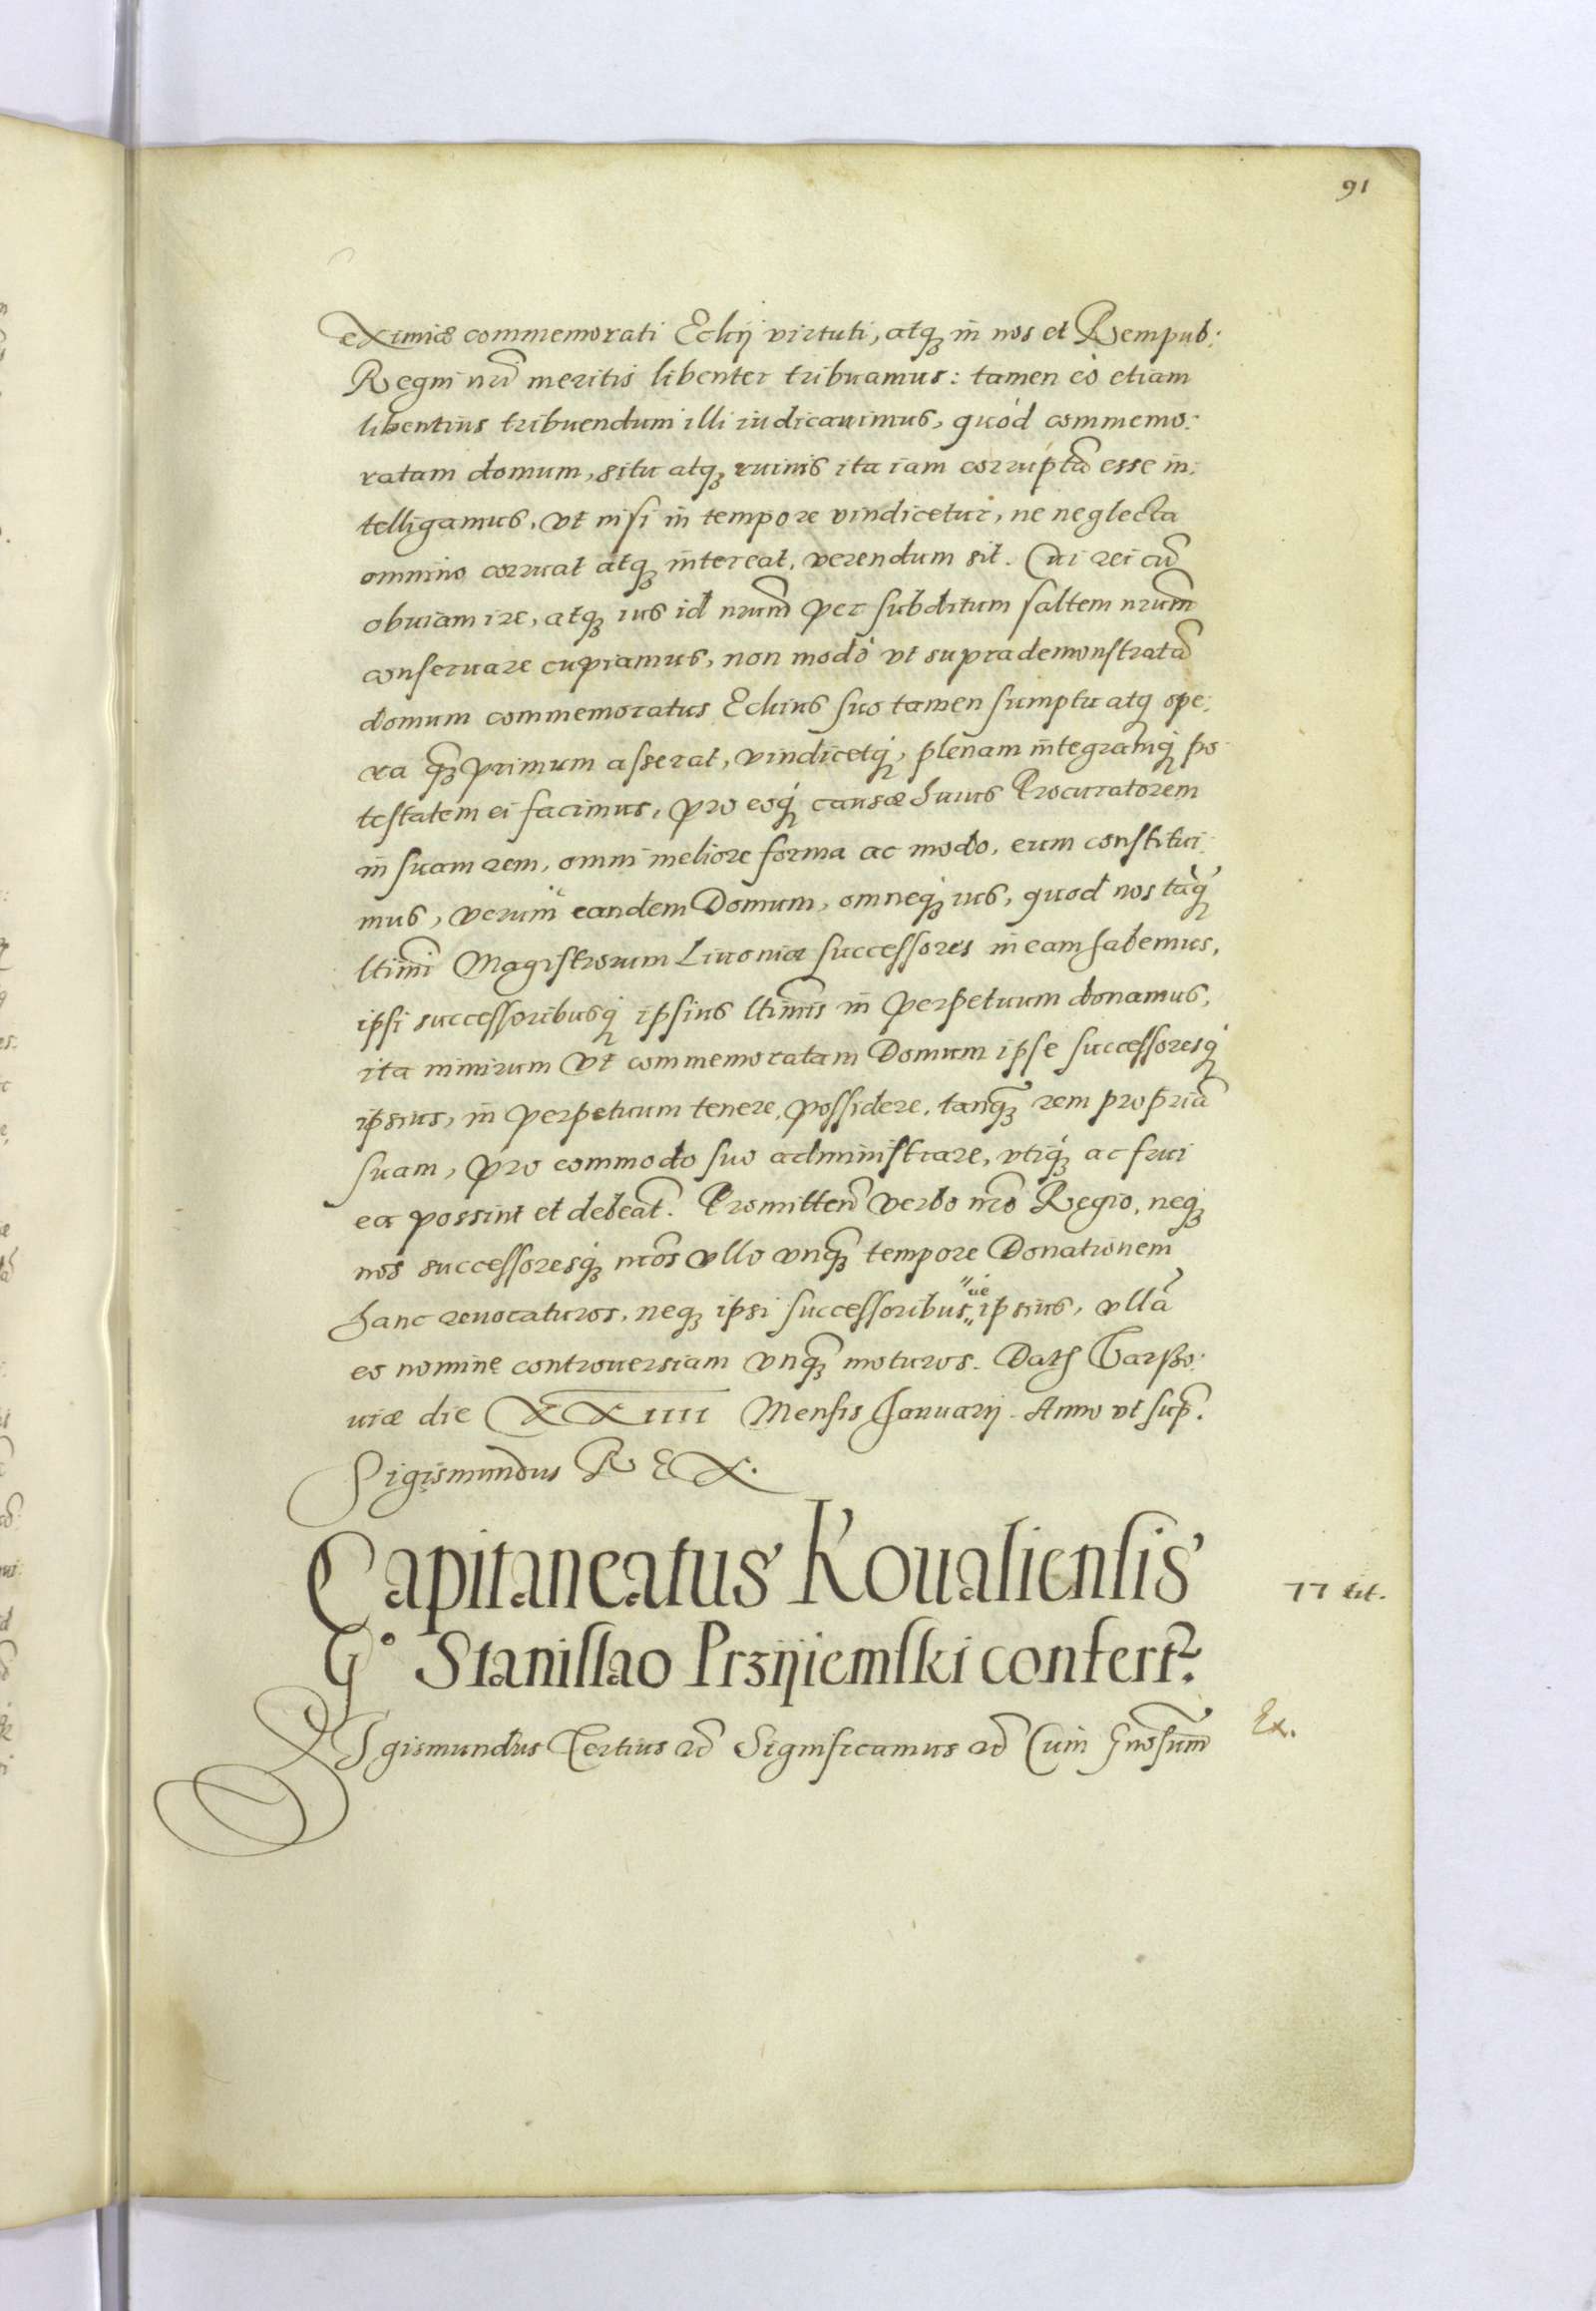 91
eximiæ commemorati Eckij virtuti, atq; in nos et Rempub:
Regni nrı̃ meritis libenter tribuamus: tamen eò etiam
libentius tribuendum illi iudicauimus, quòd commemo:
ratam domum, situ atq; ruinis ita iam corruptã esse in:
telligamus, vt nisi in tempore vindicetur, ne neglecta
omnino corruat atq; intereat, verendum sit. Cui rei cũ
obuiam ire, atq; ius id nrum̃ per subditum saltem nrum̃
conseruare cupiamus, non modò vt suprademonstratã
domum commemoratus Eckius suo tamen sumptu atq; ope:
ra q̃;primum asserat, vindicetq;, plenam integramq; po:
testatem ei facimus, pro eoq; causæ huius Procuratorem
in suam rem, omni meliore forma ac modo, eum constitui:
mus, verum eandem Domum, omneq; ius, quod nos tãq;
ltimı̃ Magistrorum Liuoniæ successores in eam habemus,
ipsi successoribusq; ipsius ltimı̃s in perpetuum donamus,
ita nimirum vt commemoratam Domum ipse successoresq;
ipsius, in perpetuum tenere, possidere, tanq̃; rem propriã
suam, pro commodo suo administrare, vtiq; ac frui
ea possint et debeãt. Promitteñ verbo nrõ Regio, neq;
nos successoresq; nrõs vllo vnq̃; tempore Donationem
hanc reuocaturos, neq; ipsi successoribus ue ipsius, vllã
eo nomine controuersiam vnq̃; moturos. Dath Varsso:
uiæ die XXIIII Mensis Januarij. Anno vt sup̃.
Sigismundus REX.
Capitaneatus Koualiensis
77 tit.
G° Stanislao Przijiemski confertr.
Ex.
SIgismundus Tertius etc̃ Significamus etc̃ Cum Gnosum̃